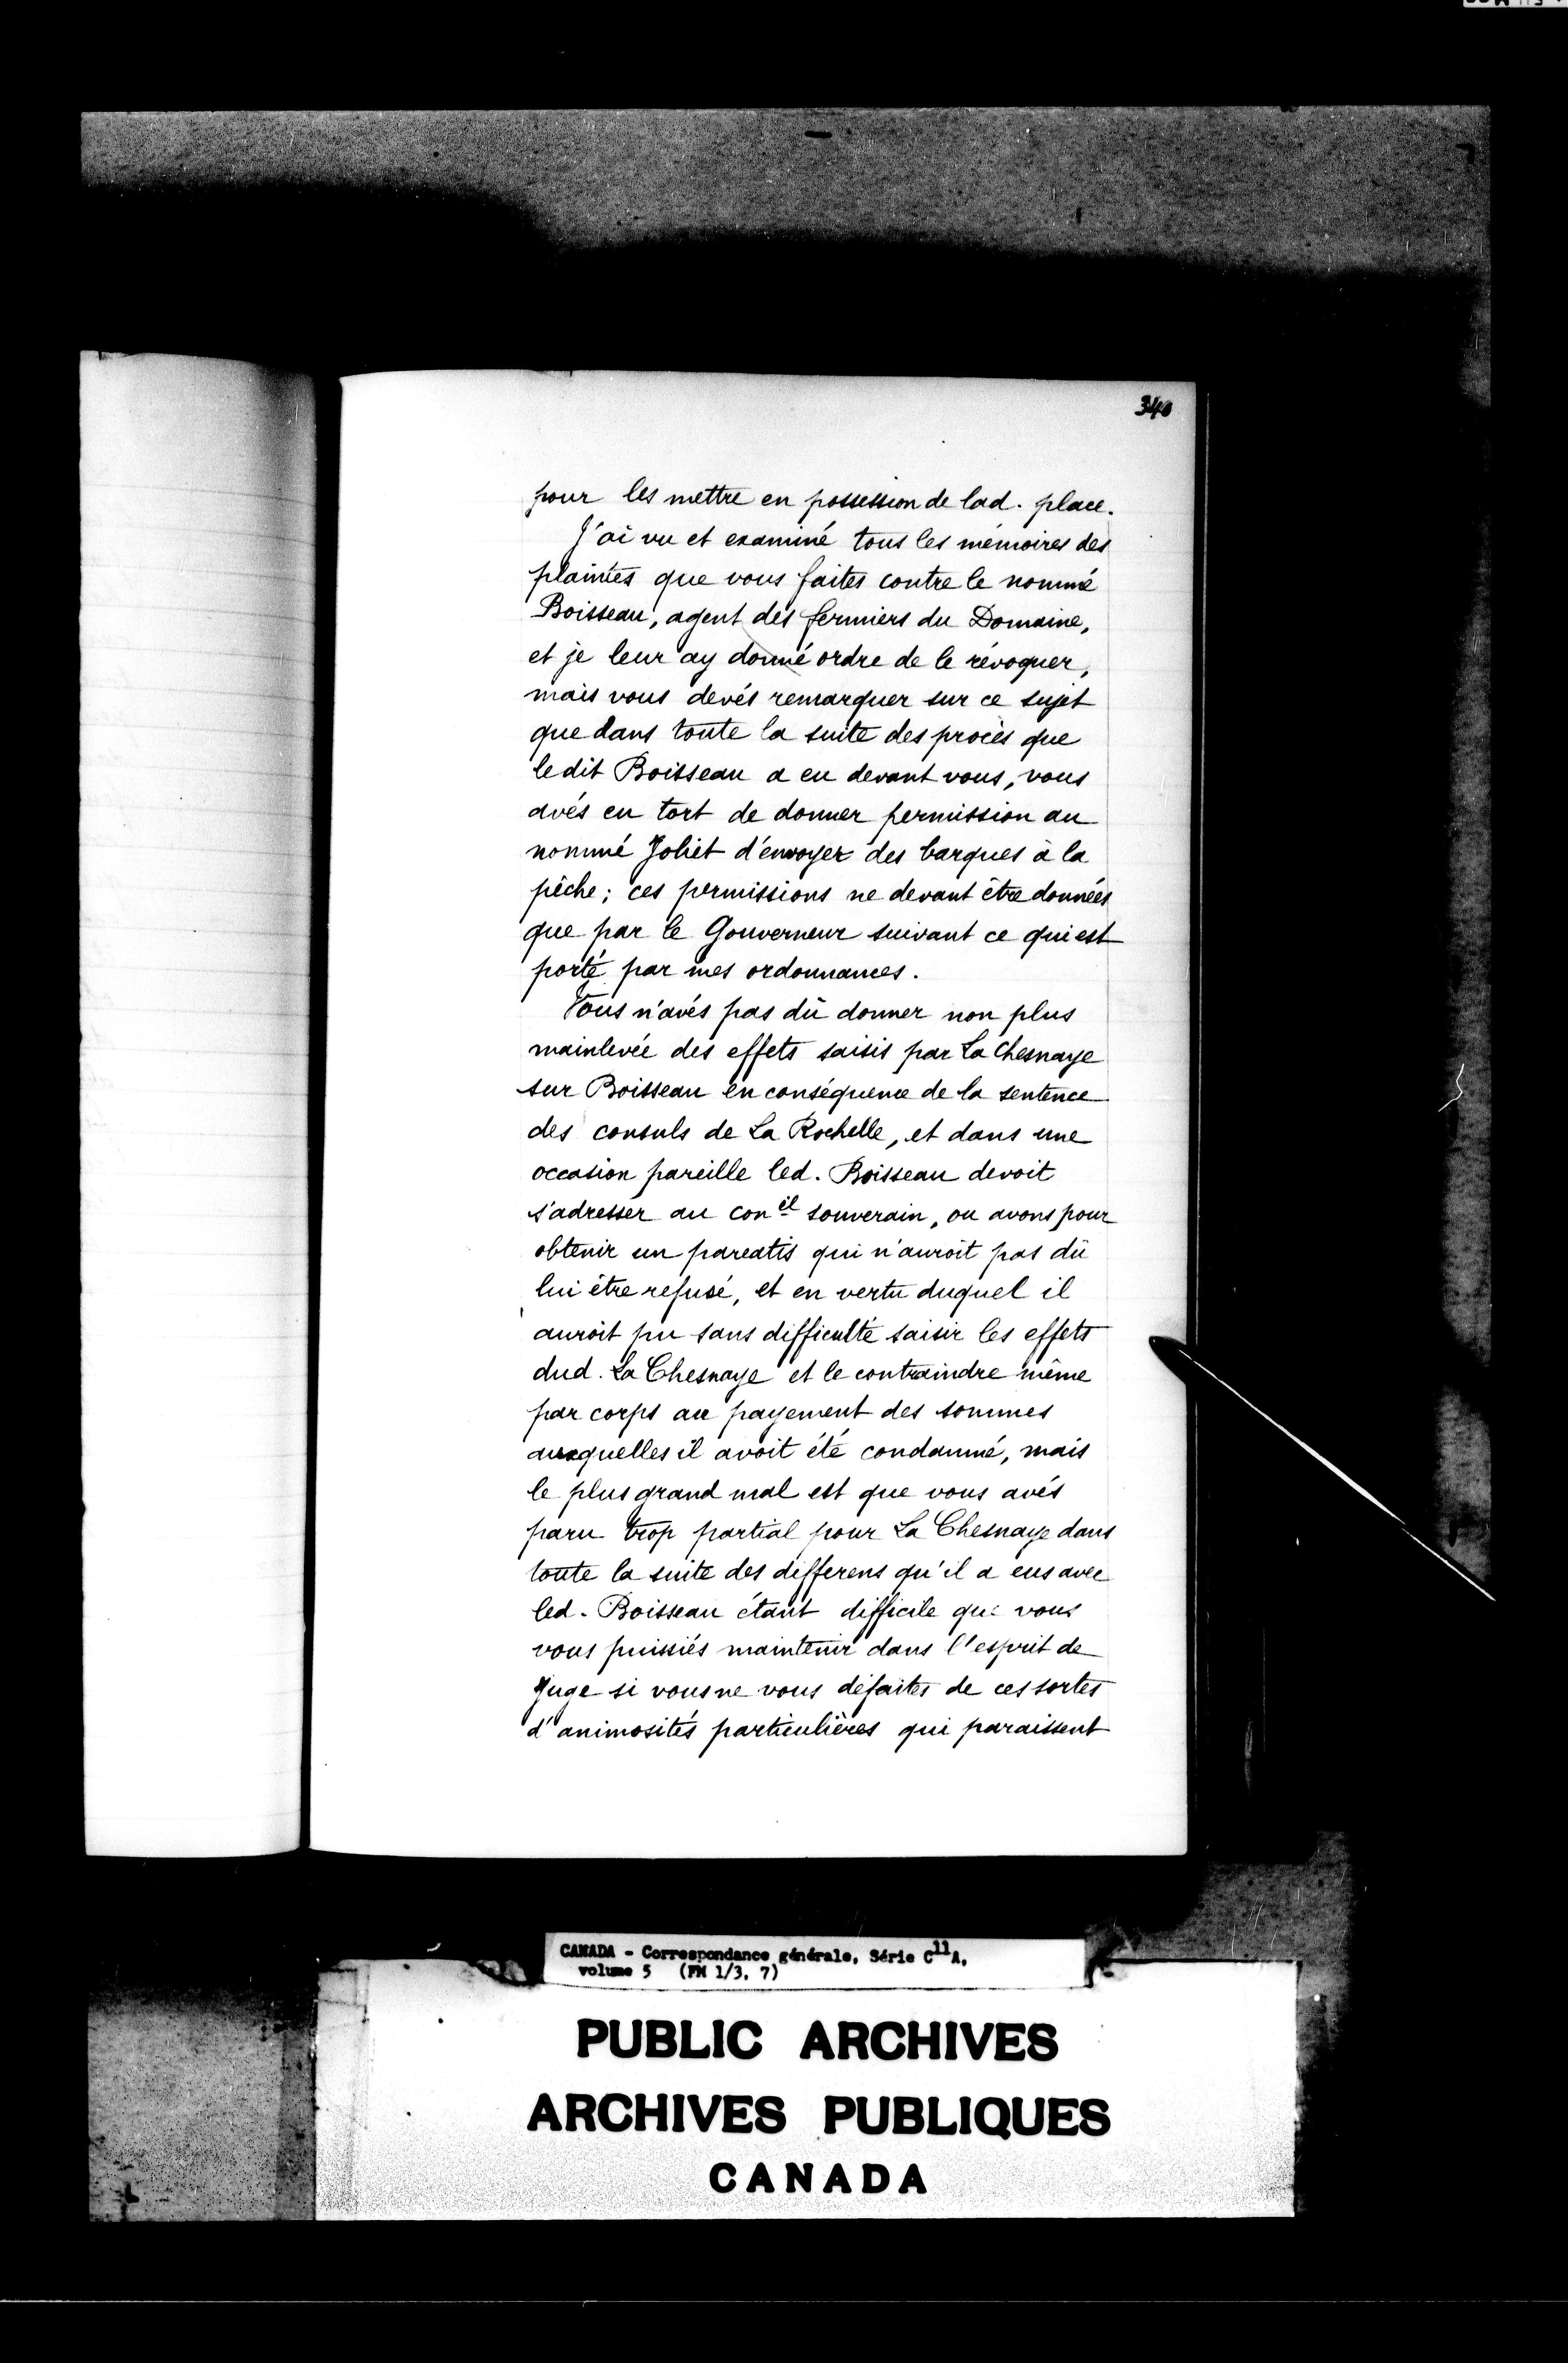 340
pour les mettre en possession de lad. place.
J'ai vu et examiné tous les mémoires des
plaintes que vous faites contre le nommé
Boisseau, agent des fermiers du Domaine,
et je leur ay donné ordre de le révoquer,
mais vous devés remarquer sur ce sujet
que dans toute la suite des procès que
ledit Boisseau a eu devant vous, vous
avés eu tort de donner permission au
nommé Joliet d'envoyer des barques à la
pêche; ces permissions ne devant être données
que par le Gouverneur suivant ce qui est
porté par mes ordonnances.
Vous n'avés pas dû donner non plus
mainlevée des effets saisis par La Chesnaye
sur Boisseau en conséquence de la sentence
des consuls de La Rochelle, et dans une
occasion pareille led. Boisseau devoit
s'adresser au con.il souverain, ou avons pour
obtenir un pareatis qui n'auroit pas dû
lui être refusé, et en vertu duquel il
auroit pu sans difficulté saisir les effets
dud. La Chesnaye et le contraindre même
par corps au payement des sommes
auxquelles il avoit été condamné, mais
le plus grand mal est que vous avés
paru trop partial pour La Chesnaye dans
toute la suite des differens qu'il a eus avec
led. Boisseau étant difficile que vous
vous puissiés maintenir dans l'esprit de
Juge si vous ne vous défaites de ces sortes
d'animosités particulières qui paraissent
CANADA - Correspondance générale, Série C11A,
volume 5 (FM 1/3, 7)
PUBLIC ARCHIVES
ARCHIVES PUBLIQUES
CANADA